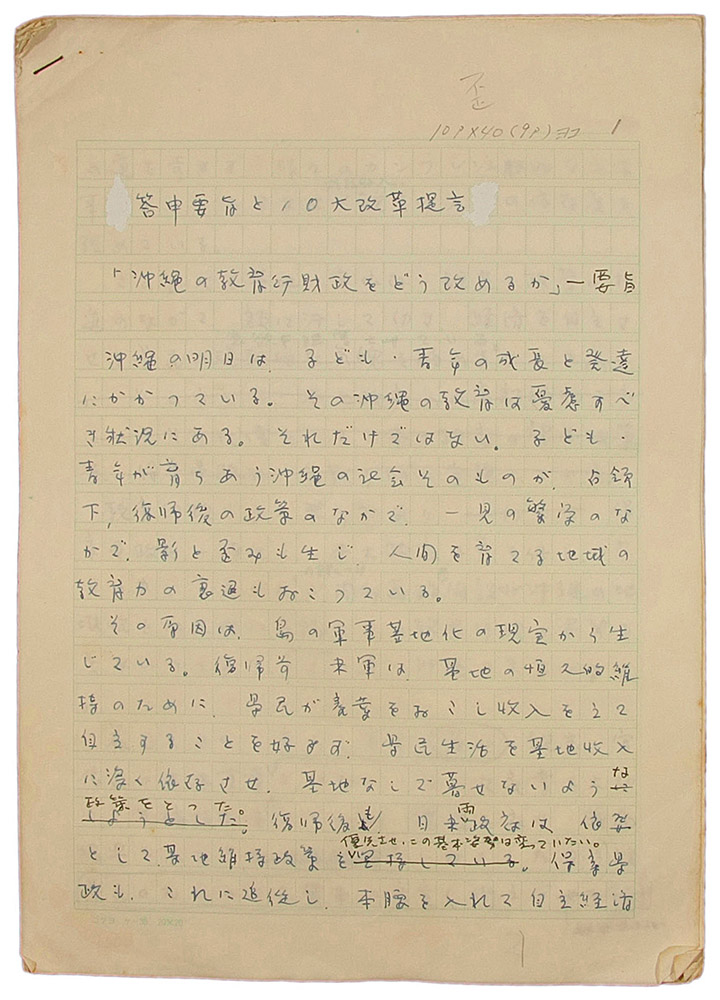 歪
10P×40(9P)ヨコ 1
答申要旨と10大改革提言
「沖縄の教育行財政をどう改めるか」一要旨
沖縄の明日は、子ども・青年の成長と発達
にかかっている。その沖縄の教育は憂慮すべ
き状況にある。それだけではない。子ども・
青年が育ちあう沖縄の社会そのものが、占領
下、復帰後の政策のなかで、一見の繁栄のな
かで、影と歪みも生じ、人間を育てる地域の
教育力の衰退もおこっている。
その原因は、島の軍事基地化の現実から生
じている。復帰前 米軍は、基地の恒久的維
持のために、県民が産業をおこし収入を立て
自立することを好まず、県民生活を基地収入
に深く依存させ、基地なしで暮せないような
政策をとった。
しようとした。復帰後も 日米両政府は 依然
優先させ、この基本姿勢は変っていない。
として、基地維持政策を している。保革県
政も、これに追従し、本腰を入れて自立経済